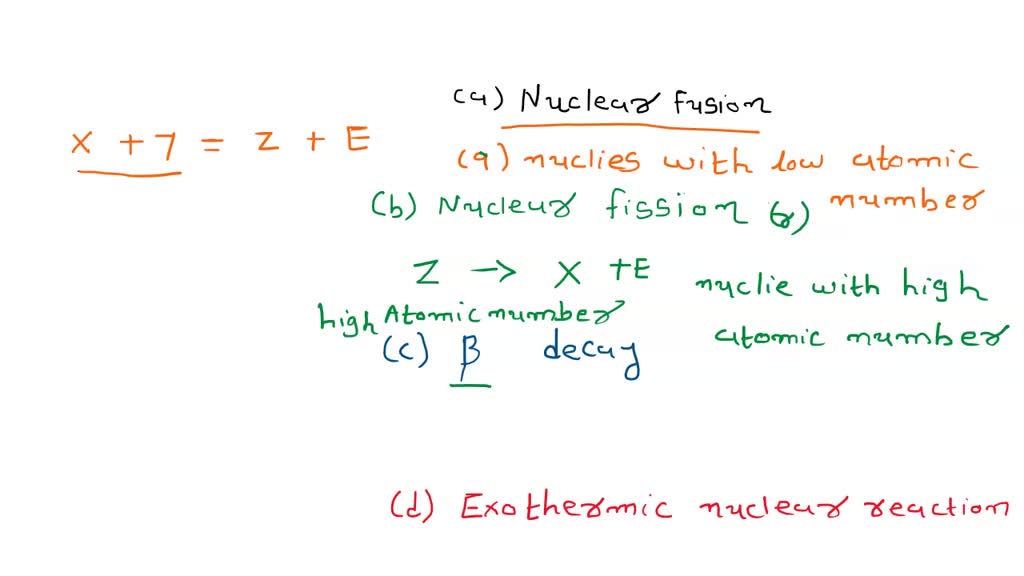 (a) Nuclear Fusion
x + 7 = z + E
(q) nuclies with low atomic
number
(b) Nuclear fission (r)
z → x + E
nuclie with high
atomic number
high Atomic number
(c) β decay
(d) Exothermic nuclear reaction